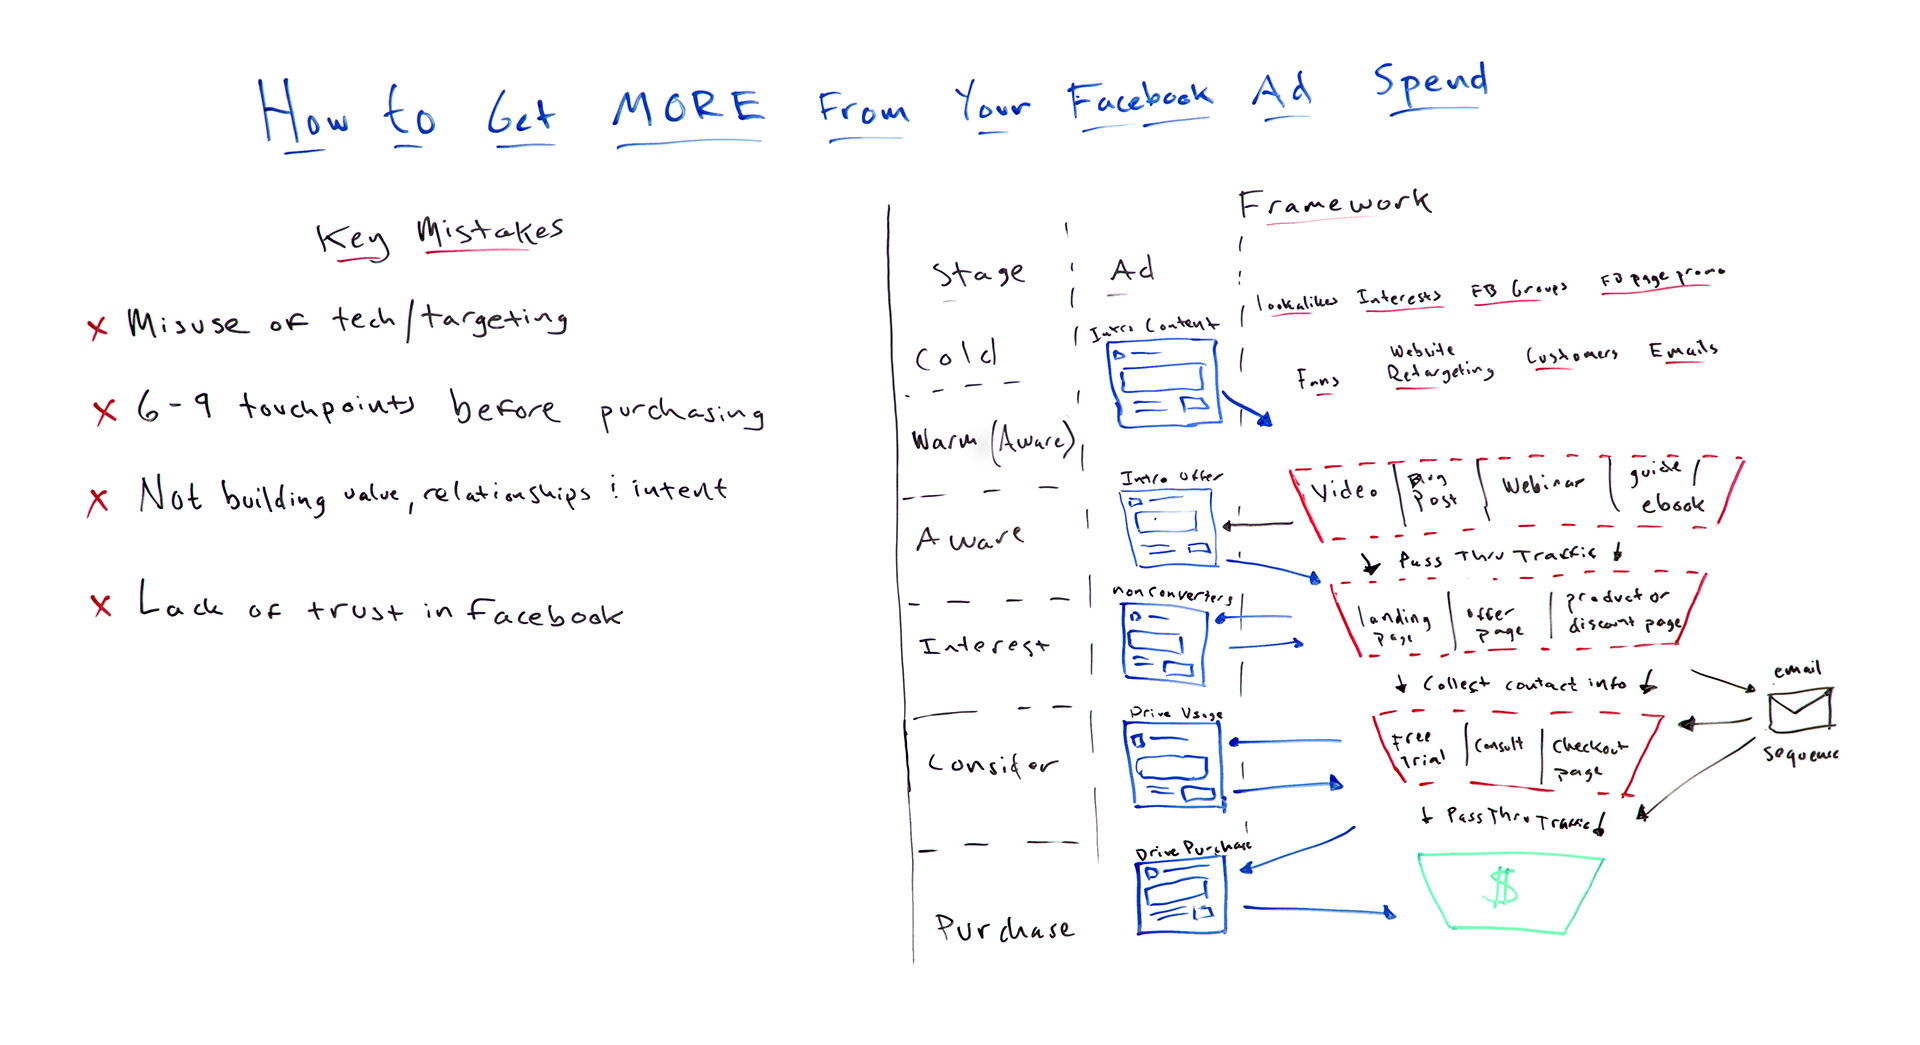 How to Get MORE From Your Facebook Ad Spend
Key Mistakes
x Misuse of tech/targeting
x 6-9 touchpoints before purchasing
x Not building value, relationships & intent
x Lack of trust in Facebook
Framework
Stage
Ad
Cold
Warm (Aware)
Aware
Interest
Consider
Purchase
Intro Content
Intro Offer
nonconverters
Drive Usage
Drive Purchase
lookalikes Interests FB Groups FB page promo
Fans Website Retargeting Customers Emails
Video
Blog
Post
Webinar
guide/
ebook
Pass Thru Traffic
landing
page
offer
page
product or
discount page
Collect contact info
email
sequence
Free
Trial
Consult
Checkout
page
Pass Thru Traffic
$